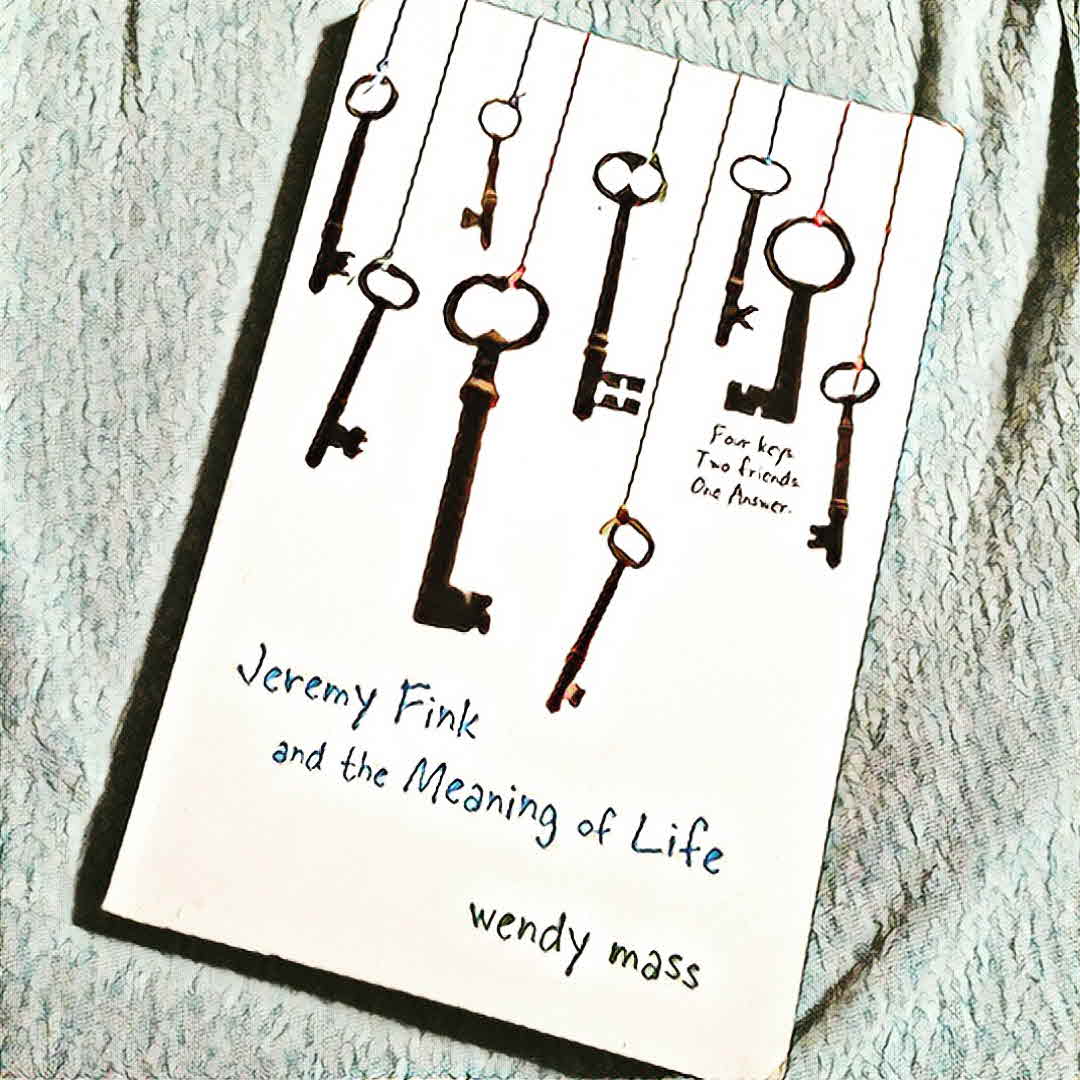 Four keys.
Two friends.
One Answer.
Jeremy Fink
and the Meaning of Life
wendy mass